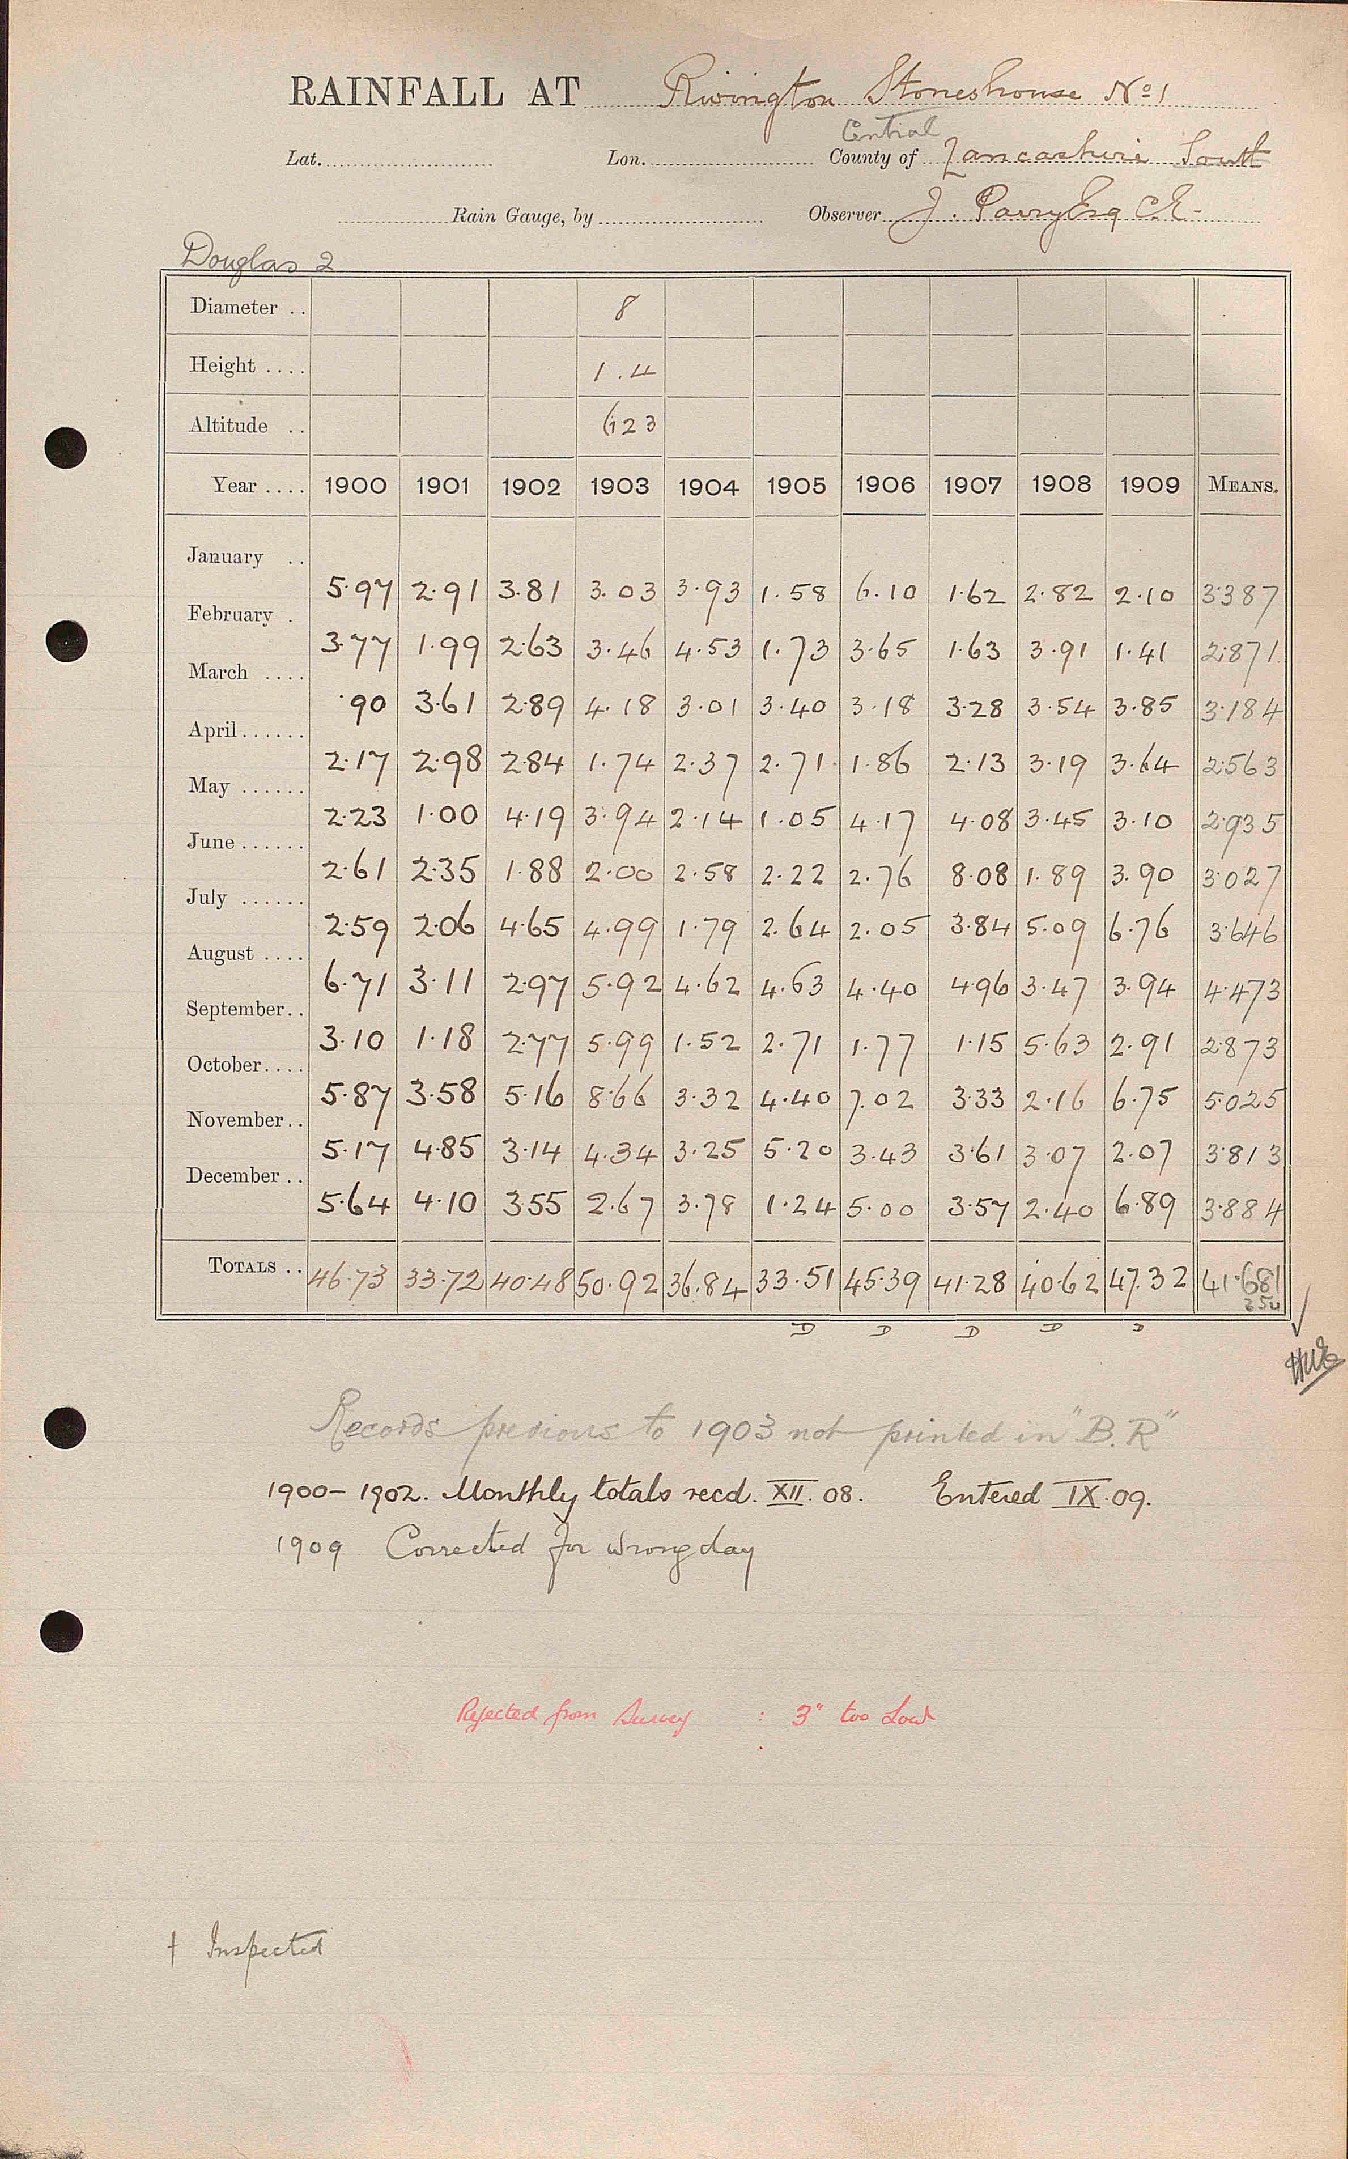 RAINFALL AT Rivington Stoneshouse No 1
Central
Lat. Lon. County of Lancashire South
Rain Gauge, by Observer J. Parry Esq C.E.
Douglas 2
Diameter .. 8
Height .... 1.4
Altitude .. 623
Year .... 1900 1901 1902 1903 1904 1905 1906 1907 1908 1909 MEANS.
January .. 5.97 2.91 3.81 3.03 3.93 1.58 6.10 1.62 2.82 2.10 3.387
February . 3.77 1.99 2.63 3.46 4.53 1.73 3.65 1.63 3.91 1.41 2.871
March .... .90 3.61 2.89 4.18 3.01 3.40 3.18 3.28 3.54 3.85 3.184
April ...... 2.17 2.98 2.84 1.74 2.37 2.71 1.86 2.13 3.19 3.64 2.563
May ...... 2.23 1.00 4.19 3.94 2.14 1.05 4.17 4.08 3.45 3.10 2.935
June ...... 2.61 2.35 1.88 2.00 2.58 2.22 2.76 8.08 1.89 3.90 3.027
July ...... 2.59 2.06 4.65 4.99 1.79 2.64 2.05 3.84 5.09 6.76 3.646
August .... 6.71 3.11 2.97 5.92 4.62 4.63 4.40 4.96 3.47 3.94 4.473
September .. 3.10 1.18 2.77 5.99 1.52 2.71 1.77 1.15 5.63 2.91 2.873
October .... 5.87 3.58 5.16 8.66 3.32 4.40 7.02 3.33 2.16 6.75 5.025
November .. 5.17 4.85 3.14 4.34 3.25 5.20 3.43 3.61 3.07 2.07 3.813
December .. 5.64 4.10 3.55 2.67 3.78 1.24 5.00 3.57 2.40 6.89 3.884
TOTALS .. 46.73 33.72 40.48 50.92 36.84 33.51 45.39 41.28 40.62 47.32 41.681
D D D D D
Records previous to 1903 not printed in "B.R"
1900-1902. Monthly totals recd. XII. 08. Entered IX. 09.
1909 Corrected for wrong day
Rejected from Survey : 3" too Low
† Inspected